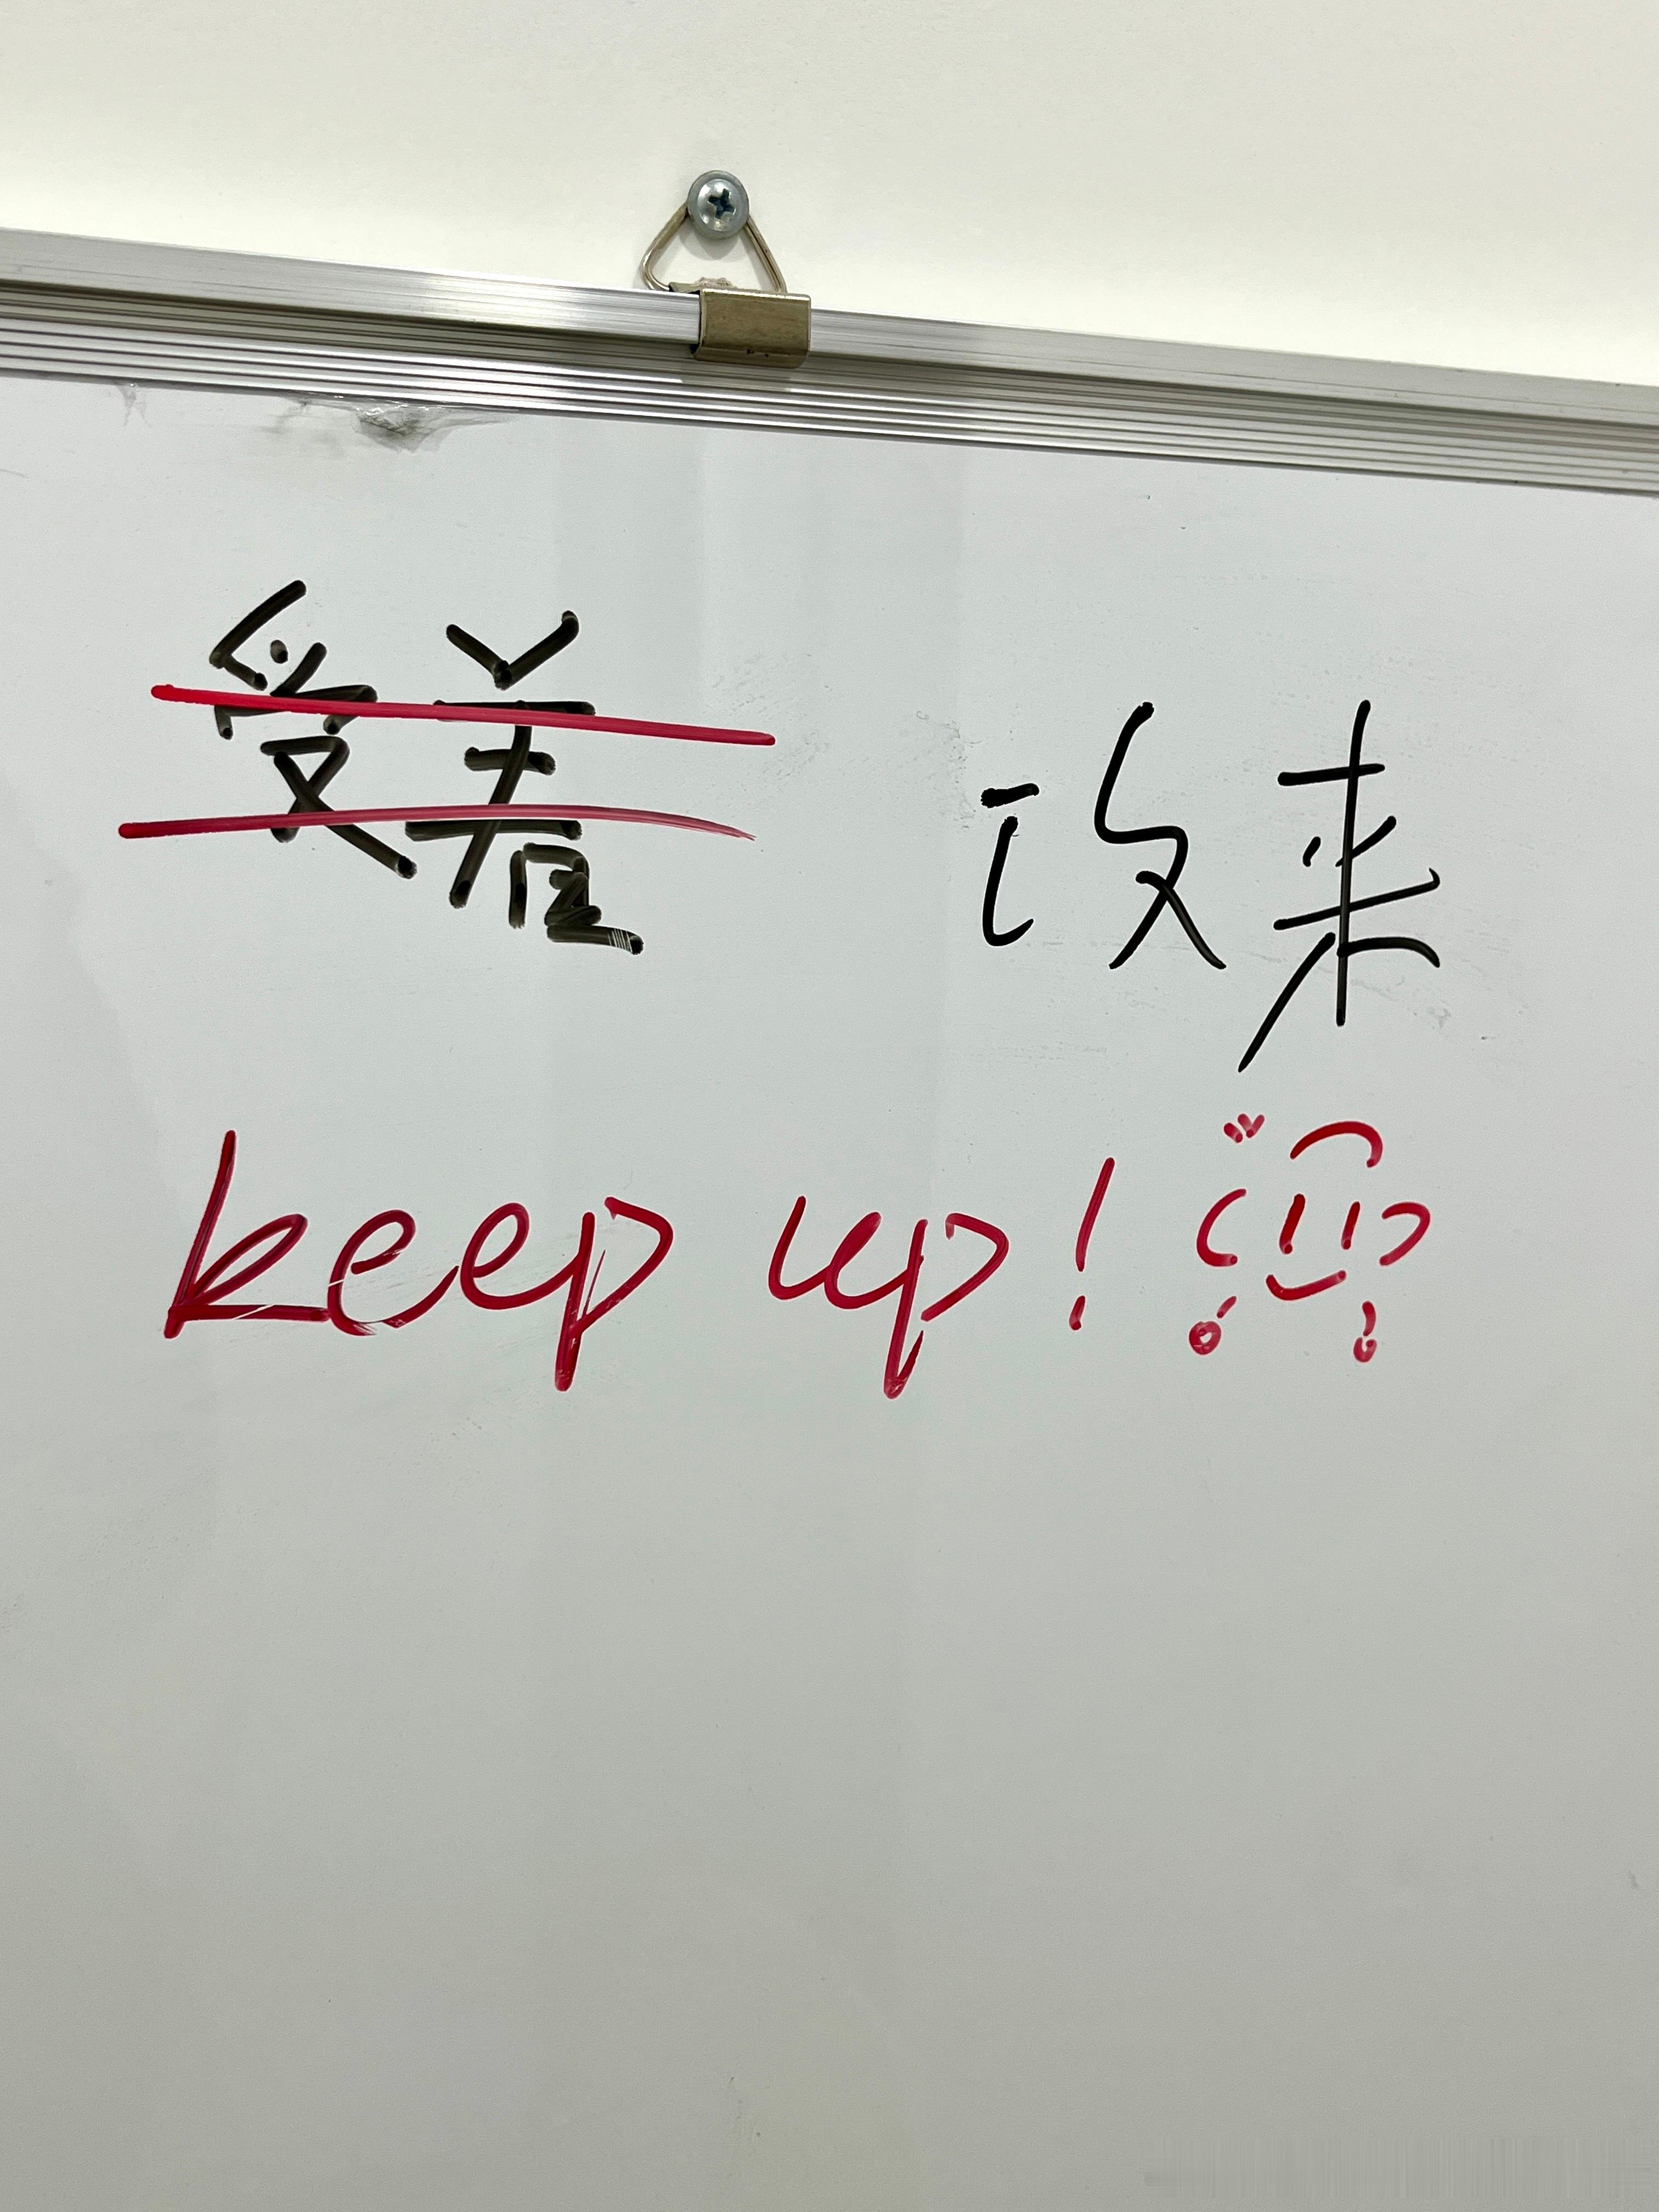 改来
keep up!